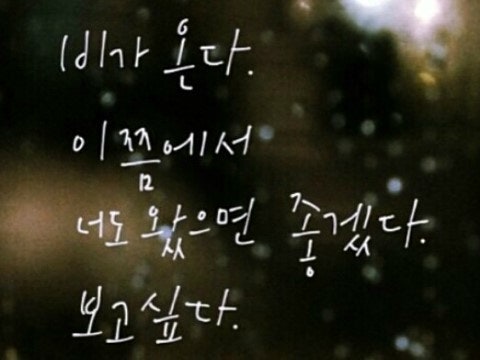 비가 온다.
이쯤에서
너도 왔으면 좋겠다.
보고싶다.